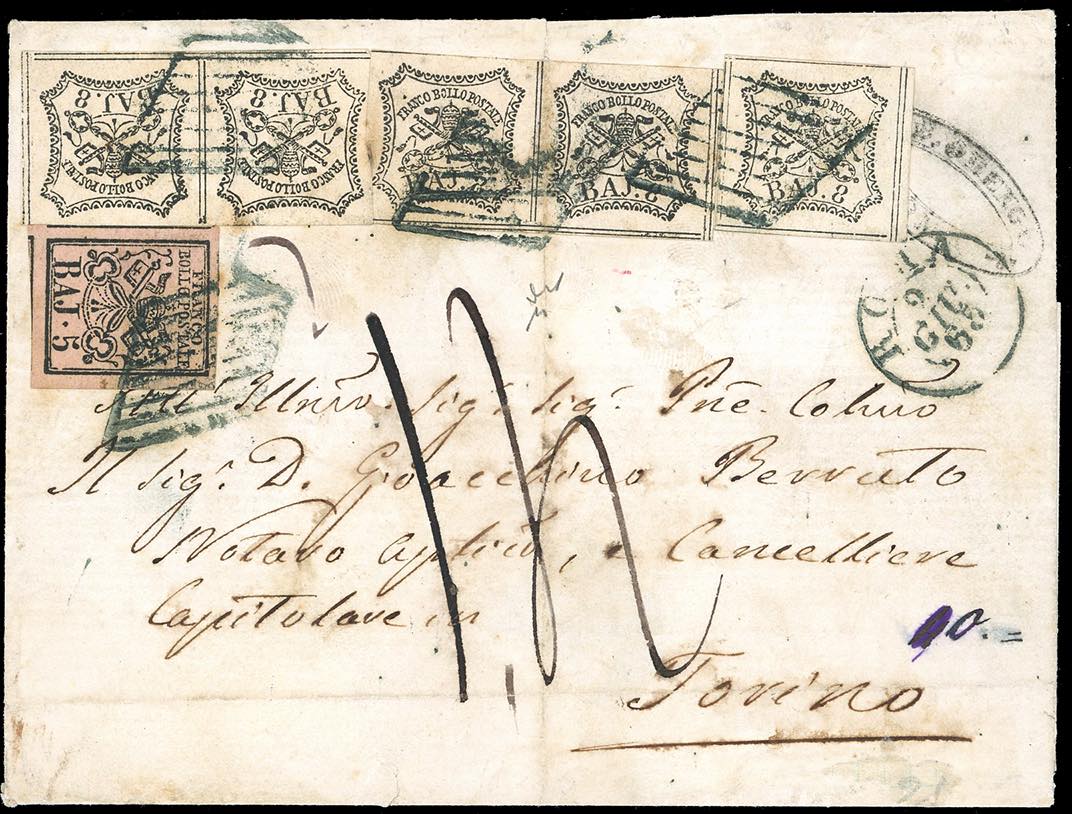 BAJ. 8
FRANCO BOLLO POSTALE
BAJ. 8
FRANCO BOLLO POSTALE
FRANCO BOLLO POSTALE
BAJ. 8
FRANCO BOLLO POSTALE
BAJ. 8
FRANCO BOLLO POSTALE
BAJ. 8
FRANCO
BOLLO POSTALE
BAJ. 5
ROMA
6
GIU
59
All' Illmo. Sig. Sig. Pne. Colmo
Il Sigr. D. Gioacchino Berruto
Notaro Aplico, e Cancelliere
Capitolare in
90.=
Torino